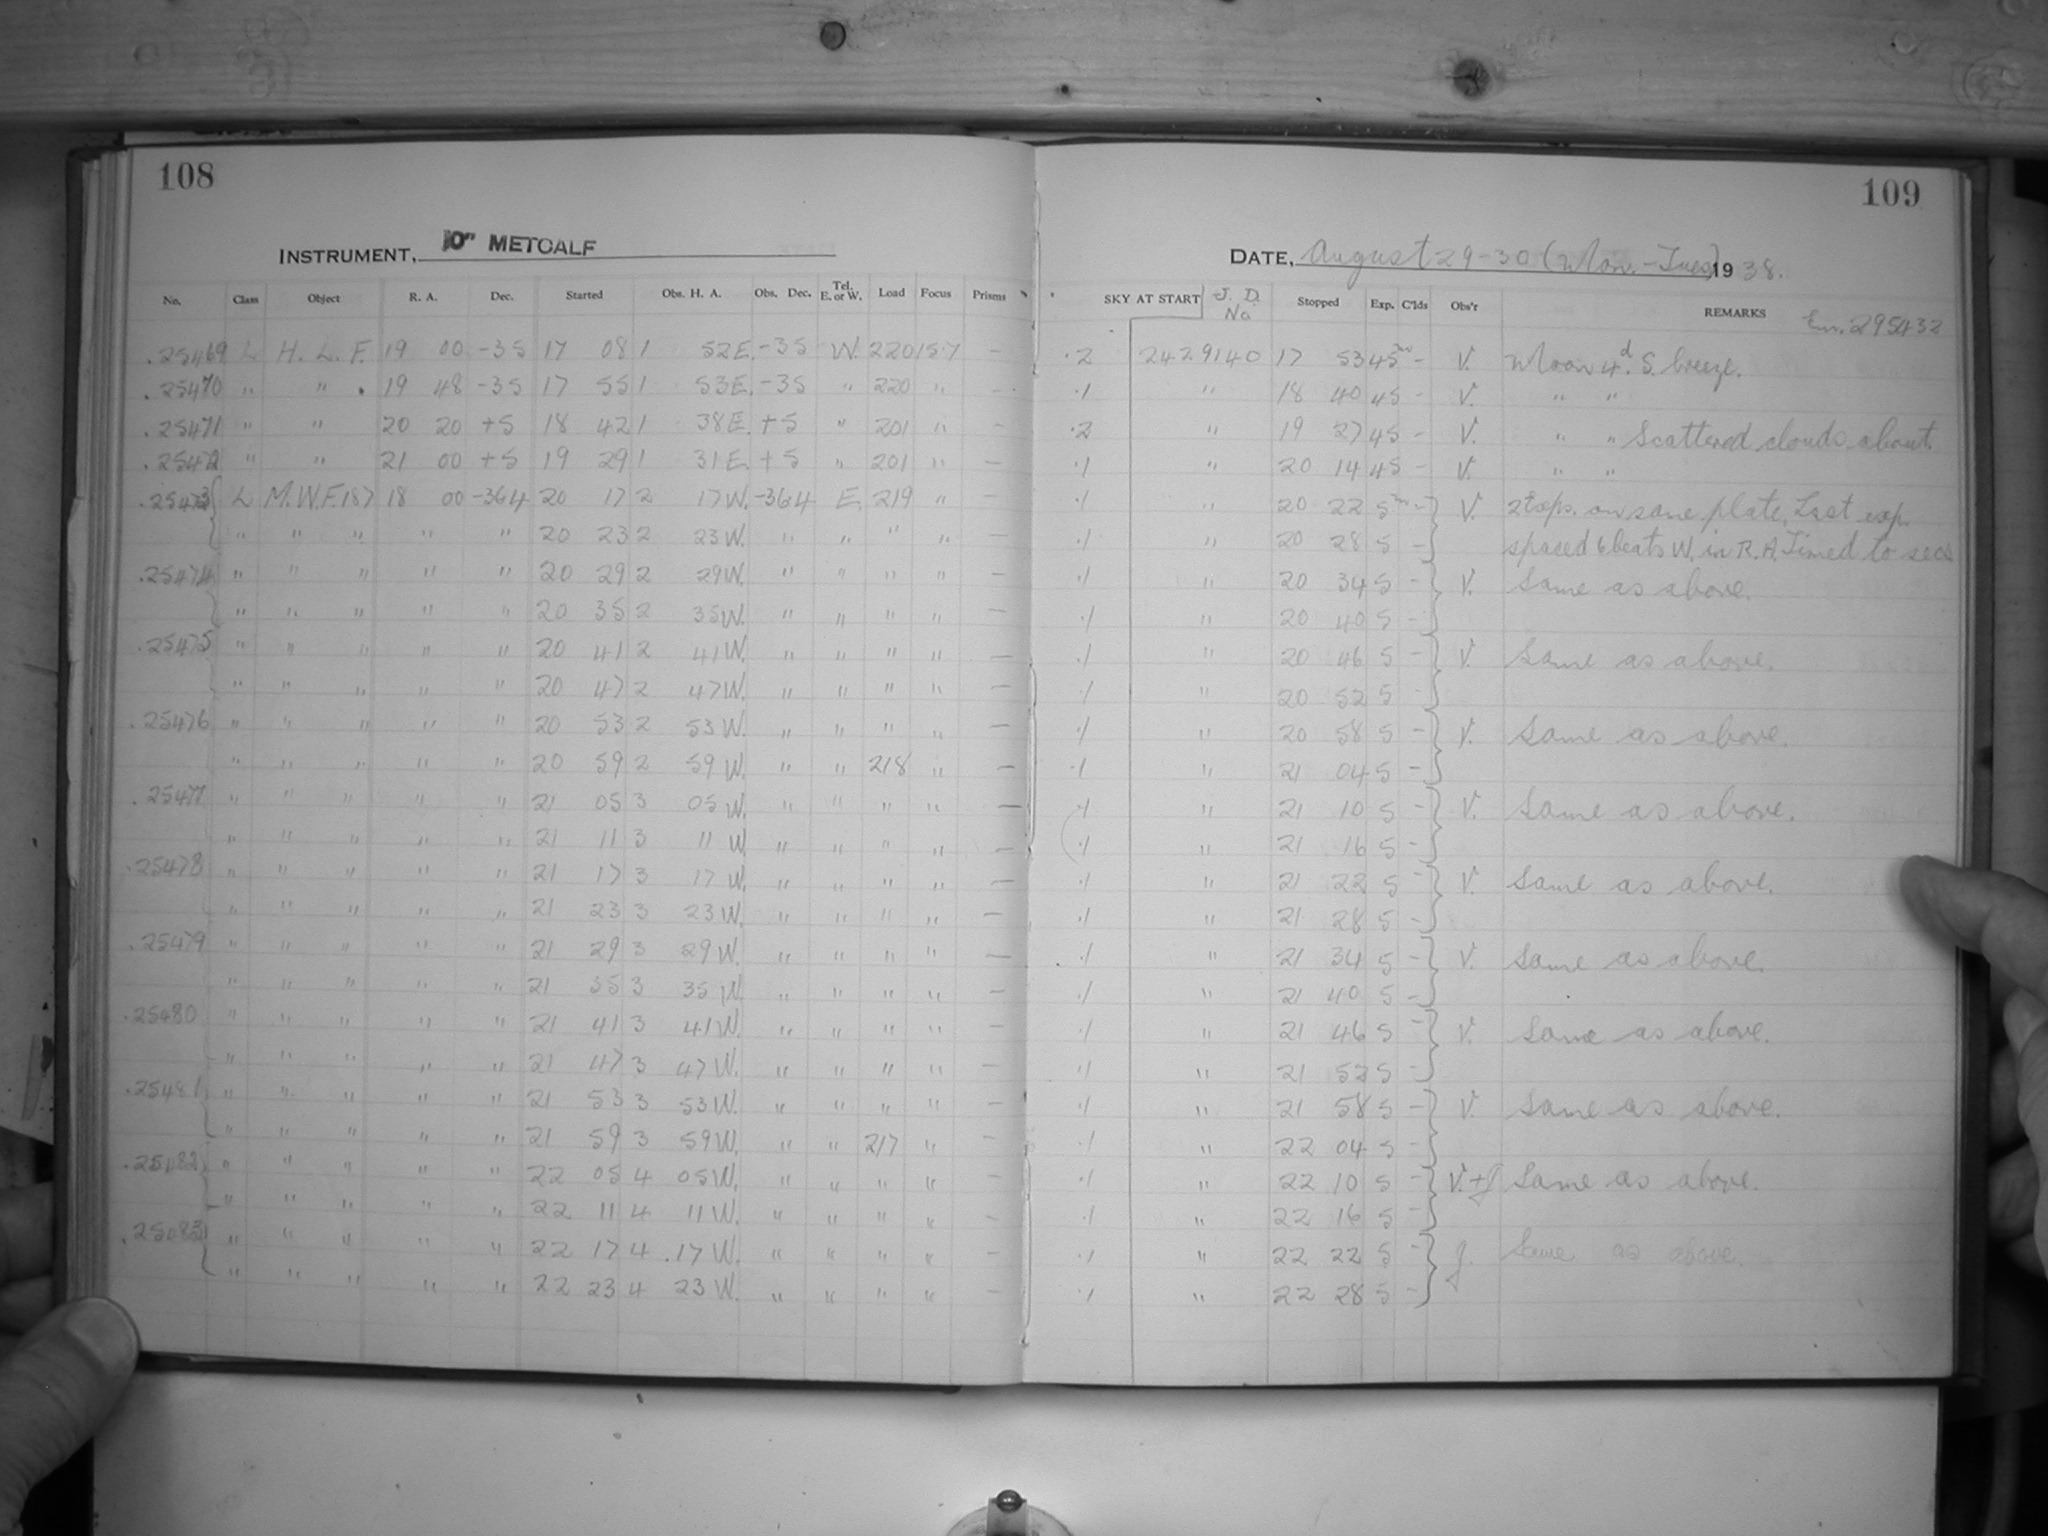 108
INSTRUMENT, 10" METCALF
No. Class Object R. A. Dec. Started Obs. H. A. Obs. Dec. Tel. E. or W. Load Focus Prisms
.25469 L H. L. F. 19 00 -35 17 08 1 52E. -35 W. 220 15.7 —
.25470 " " . 19 48 -35 17 55 1 53E. -35 " 220 " —
.25471 " " 20 20 +5 18 42 1 38E. +5 " 201 " —
.25472 " " 21 00 +5 19 29 1 31E. +5 " 201 " —
.25473 L M.W.F. 187 18 00 -36.4 20 17 2 17W. -36.4 E. 219 " —
" " " " " 20 23 2 23W. " " " " —
.25474 " " " " " 20 29 2 29W. " " " " —
" " " " " 20 35 2 35W. " " " " —
.25475 " " " " " 20 41 2 41W. " " " " —
" " " " " 20 47 2 47W. " " " " —
.25476 " " " " " 20 53 2 53W. " " " " —
" " " " " 20 59 2 59W. " " 218 " —
.25477 " " " " " 21 05 3 05W. " " " " —
" " " " " 21 11 3 11W " " " " —
.25478 " " " " " 21 17 3 17W. " " " " —
" " " " " 21 23 3 23W. " " " " —
.25479 " " " " " 21 29 3 29W. " " " " —
" " " " " 21 35 3 35W. " " " " —
.25480 " " " " " 21 41 3 41W. " " " " —
" " " " " 21 47 3 47W. " " " " —
.25481 " " " " " 21 53 3 53W. " " " " —
" " " " " 21 59 3 59W. " " 217 " —
.25482 " " " " " 22 05 4 05W. " " " " —
" " " " " 22 11 4 11W. " " " " —
.25483 " " " " " 22 17 4 .17W. " " " " —
" " " " " 22 23 4 23W. " " " " —
109
DATE, August 29-30 (Mon.-Tues) 1938.
SKY AT START J. D. No Stopped Exp. C'lds Obs'r REMARKS En. 295432
.2 2429140 17 53 45m — V. Moon 4d. S. breeze.
.1 " 18 40 45 — V. " "
.2 " 19 27 45 — V. " " Scattered clouds about.
.1 " 20 14 45 — V. " "
.1 " 20 22 5m — V. 2 exps. on same plate, Last exp.
.1 " 20 28 5 — spaced 6 beats W. in R.A. Timed to secs
.1 " 20 34 5 — V. Same as above.
.1 " 20 40 5 —
.1 " 20 46 5 — V. Same as above.
.1 " 20 52 5 —
.1 " 20 58 5 — V. Same as above.
.1 " 21 04 5 —
.1 " 21 10 5 — V. Same as above.
.1 " 21 16 5 —
.1 " 21 22 5 — V. Same as above.
.1 " 21 28 5 —
.1 " 21 34 5 — V. Same as above.
.1 " 21 40 5 —
.1 " 21 46 5 — V. Same as above.
.1 " 21 52 5 —
.1 " 21 58 5 — V. Same as above.
.1 " 22 04 5 —
.1 " 22 10 5 — V.+J Same as above.
.1 " 22 16 5 —
.1 " 22 22 5 — J. Same as above.
.1 " 22 28 5 —